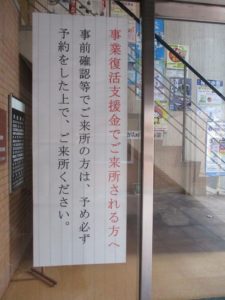 事業復活支援金でご来所される方へ
事前確認等でご来所の方は、予め必ず
予約をした上で、ご来所ください。